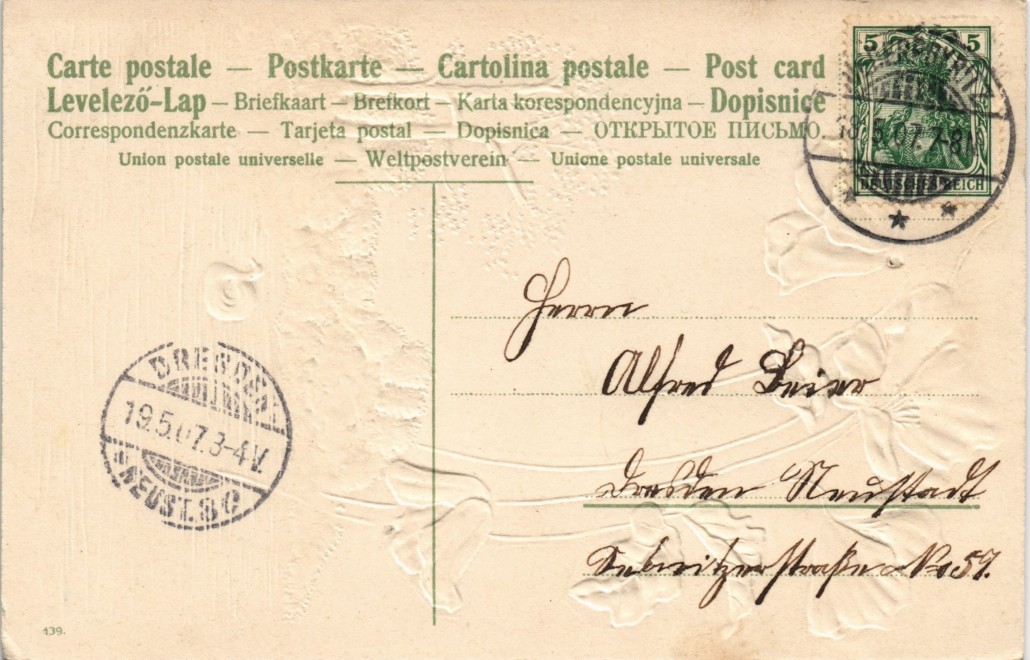 Carte postale — Postkarte — Cartolina postale — Post card
Levelező-Lap — Briefkaart — Brefkort — Karta korespondencyjna — Dopisnice
Correspondenzkarte — Tarjeta postal — Dopisnica — ОТКРЫТОЕ ПИСЬМО.
Union postale universelle — Weltpostverein — Unione postale universale
5 5
18.5.07.7-8N.
DEUTSCHES REICH
Herrn
Alfred Beier
Dresden Neustadt
Sebnitzerstraße No 59.
DRESDEN
19.5.07.3-4V.
NEUST. 8 c
139.